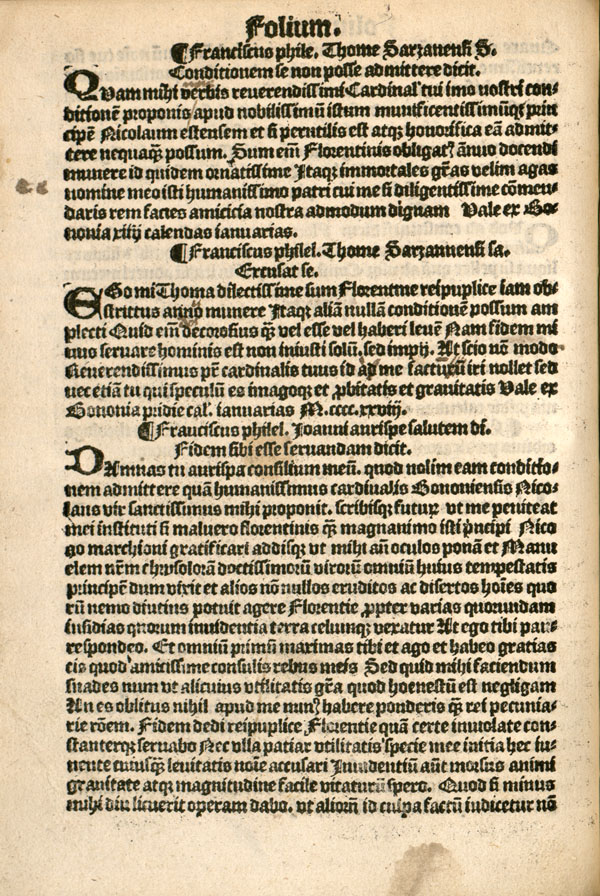 Folium.
¶Franciscus phile. Thome Sarzanensi S.
Conditionem se non posse admittere dicit.
QVam mihi verbis reuerendissimi Cardinal' tui imo vostri con⸗
ditionē proponis apud nobilissimū istum munificentissimūqꝫ prin
cipē Nicolaum estensem et si perutilis est atqꝫ honorifica eā admit⸗
tere nequaqꝫ possum. Sum em̄ Florentinis obligat? ānuo docendi
munere id quidem ornatissime Itaqꝫ immortales gr̄as velim agas
nomine meo isti humanissimo patri cui me si diligentissime cōmen⸗
daris rem facies amicicia nostra admodum dignam Vale ex Bo⸗
nonia xiiij calendas ianuarias.
¶Franciscus philel. Thome Sarzannensi sa.
Excusat se.
EGo mi Thoma dilectissime sum Florentine reipuplice iam ob⸗
strittus annuo munere Itaqꝫ aliā nullā conditionē possum am
plecti Quid em̄ decorosius qꝫ vel esse vel haberi leuē Nam fidem mi
nus seruare hominis est non iniusti solū. sed impij. At scio nō modo
Reuerendissimus pr̄ cardinalis tuus id a me facturū iri nollet sed
nec etiā tu qui speculū es imagoqꝫ et ꝓbitatis et grauitatis Vale ex
Bononia pridie cal'. ianuarias M.cccc.xxviij.
¶Franciscus philel. Ioanni aurispe salutem di.
Fidem sibi esse seruandam dicit.
DAmnas tu aurispa consilium meū. quod nolim eam conditio⸗
nem admittere quā humanissimus cardinalis Bononiensis Nico⸗
laus vir sanctissimus mihi proponit. scribisqꝫ futuꝝ vt me peniteat
mei instituti si maluero florentinis qꝫ magnanimo isti p̄ncipi Nico
go marchioni gratificari addisqꝫ vt mihi an̄ oculos ponā et Manu
elem nr̄m chrysolorā doctissimorū virorū omniū huius tempestatis
principē dum vixit et alios nō nullos eruditos ac disertos hoīes quo
rū nemo diutius potuit agere Florentie ꝓpter varias quorundam
insidias quorum inuidentia terra celumqꝫ vexatur At ego tibi paꝝ
respondeo. Et omniū primū maximas tibi et ago et habeo gratias
cis quod amicissime consulis rebus meis Sed quid mihi faciendum
suades num vt alicuius vtilitatis gr̄a quod hoenestū est negligam
An es oblitus nihil apud me nun? habere ponderis qꝫ rei pecunia⸗
rie rōem. Fidem dedi reipuplice Florentie quā certe inuiolate con⸗
stanterqꝫ seruabo Nec vlla patiar vtilitatis specie mee initia hec iu⸗
uente cuiusqꝫ leuitatis noīe accusari Inuidentiū aūt morsus animi
grauitate atqꝫ magnitudine facile vitaturū spero. Quod si minus
mihi diu licuerit operam dabo. vt aliorū id culpa factū iudicetur nō